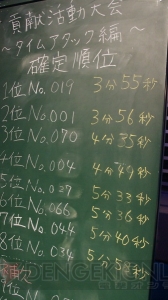 貢献活動大会
～タイムアタック編～
確定順位
1位 No.019 3分55秒
2位 No.001 3分56秒
3位 No.070 4分35秒
4位 No.004 4分49秒
5位 No.027 5分33秒
6位 No.066 5分36秒
7位 No.044 5分40秒
8位 No.034 5分5
DENGEKI ONLINE